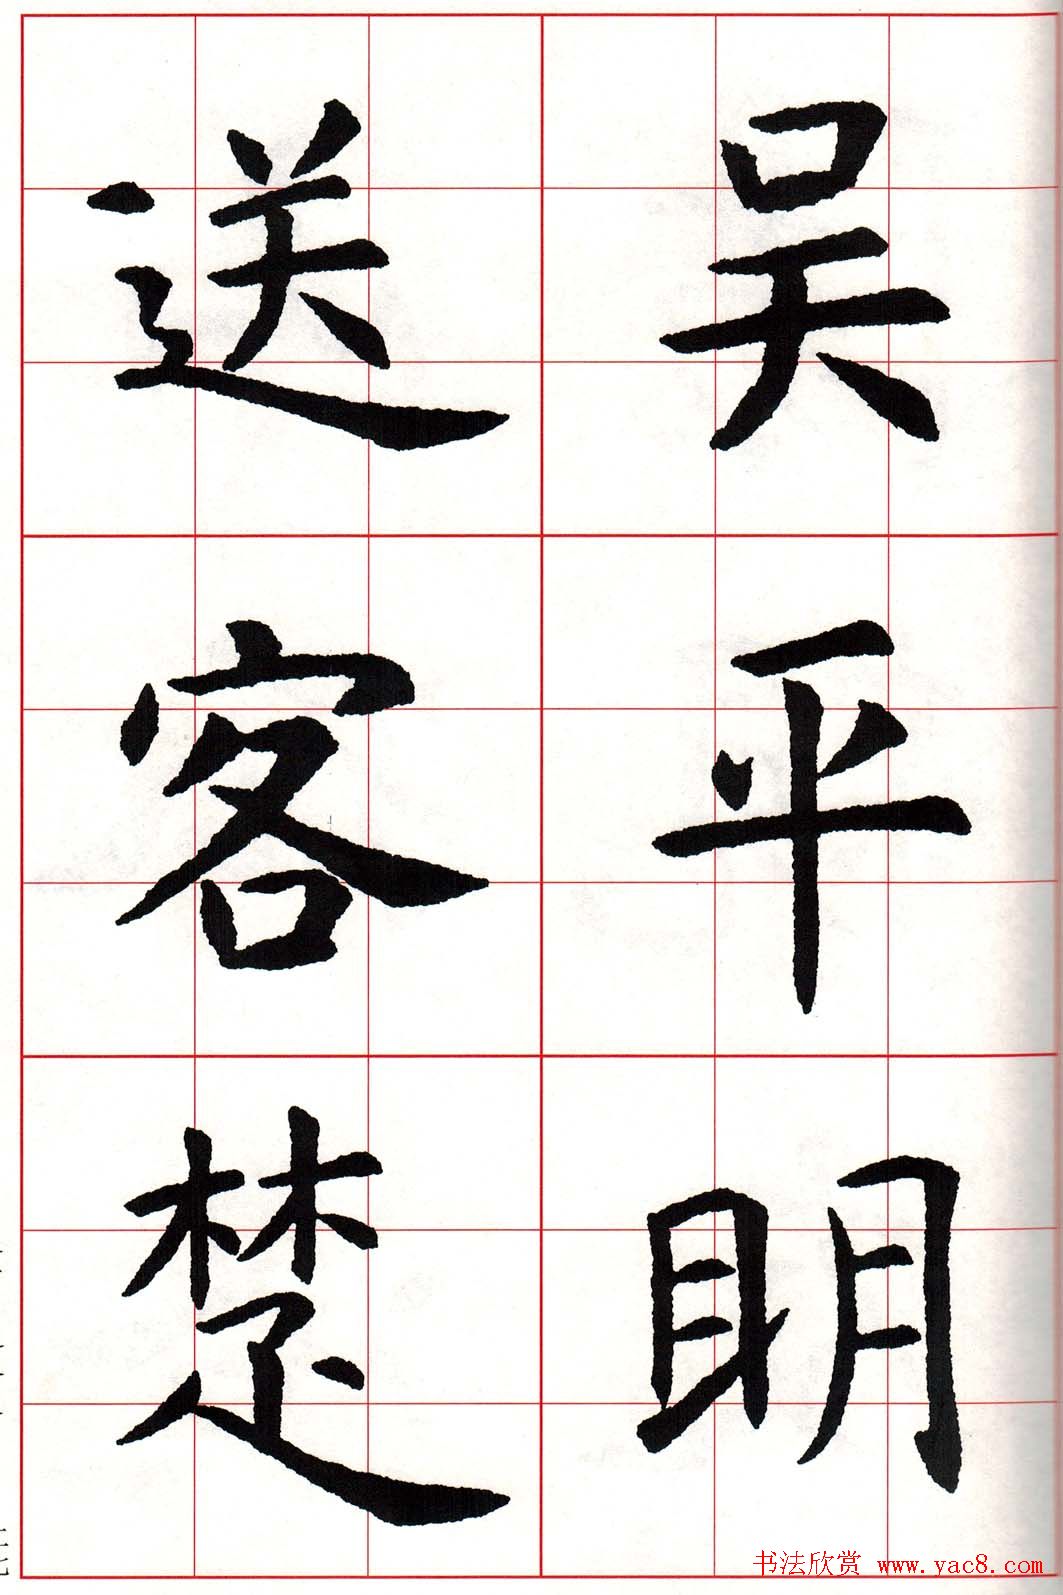 吴平明
送客楚
书法欣赏 www.yac8.com